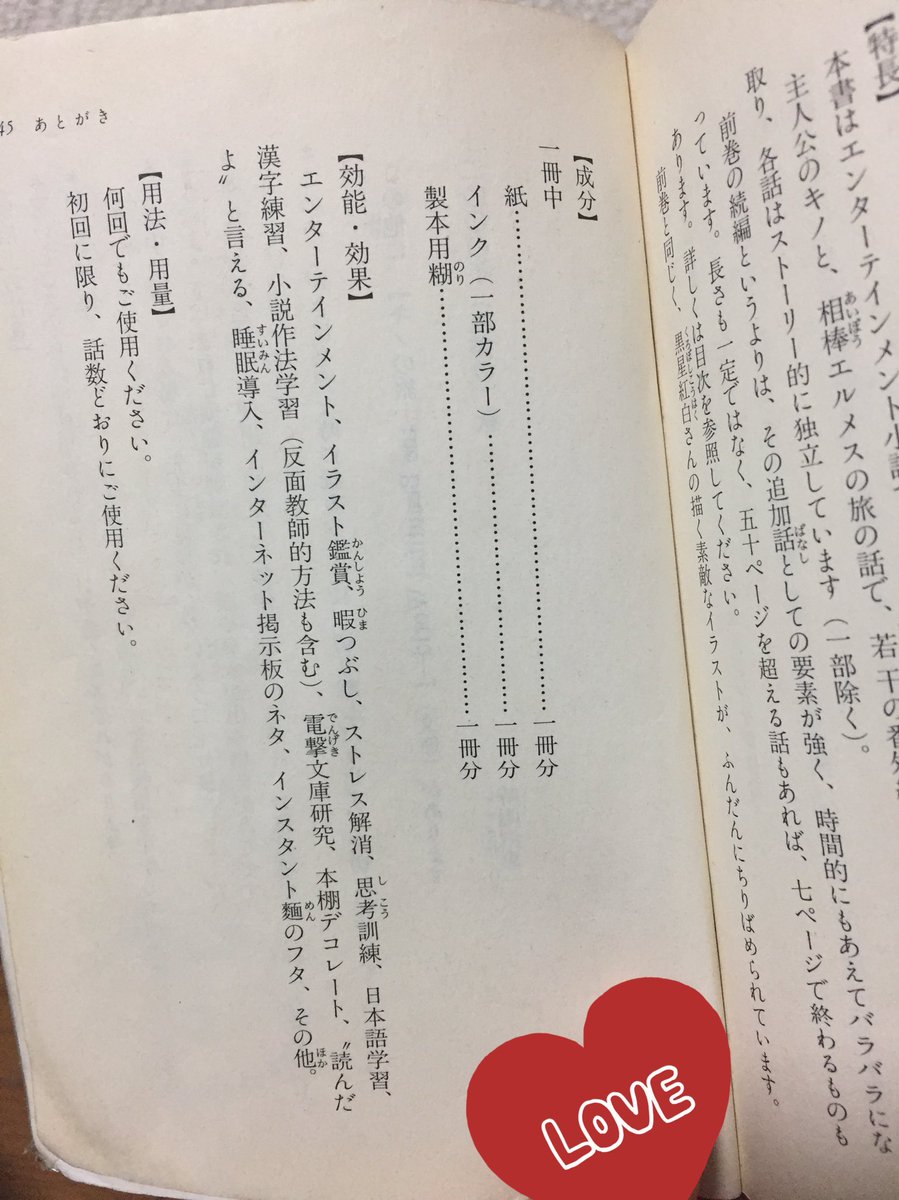 【特長】
本書はエンターテインメント小説
主人公のキノと、相棒エルメスの旅の話で、若干の番外
取り、各話はストーリー的に独立しています（一部除く）。
前巻の続編というよりは、その追加話としての要素が強く、時間的にもあえてバラバラにな
っています。長さも一定ではなく、五十ページを超える話もあれば、七ページで終わるものも
あります。詳しくは目次を参照してください。
前巻と同じく、黒星紅白さんの描く素敵なイラストが、ふんだんにちりばめられています。
【成分】
一冊中
紙……………………………………一冊分
インク（一部カラー）……………………一冊分
製本用糊……………………………………一冊分
【効能・効果】
エンターテインメント、イラスト鑑賞、暇つぶし、ストレス解消、思考訓練、日本語学習、
漢字練習、小説作法学習（反面教師的方法も含む）、電撃文庫研究、本棚デコレート、〝読んだ
よ〟と言える、睡眠導入、インターネット掲示板のネタ、インスタント麺のフタ、その他。
【用法・用量】
何回でもご使用ください。
初回に限り、話数どおりにご使用ください。
45 あとがき
LOVE